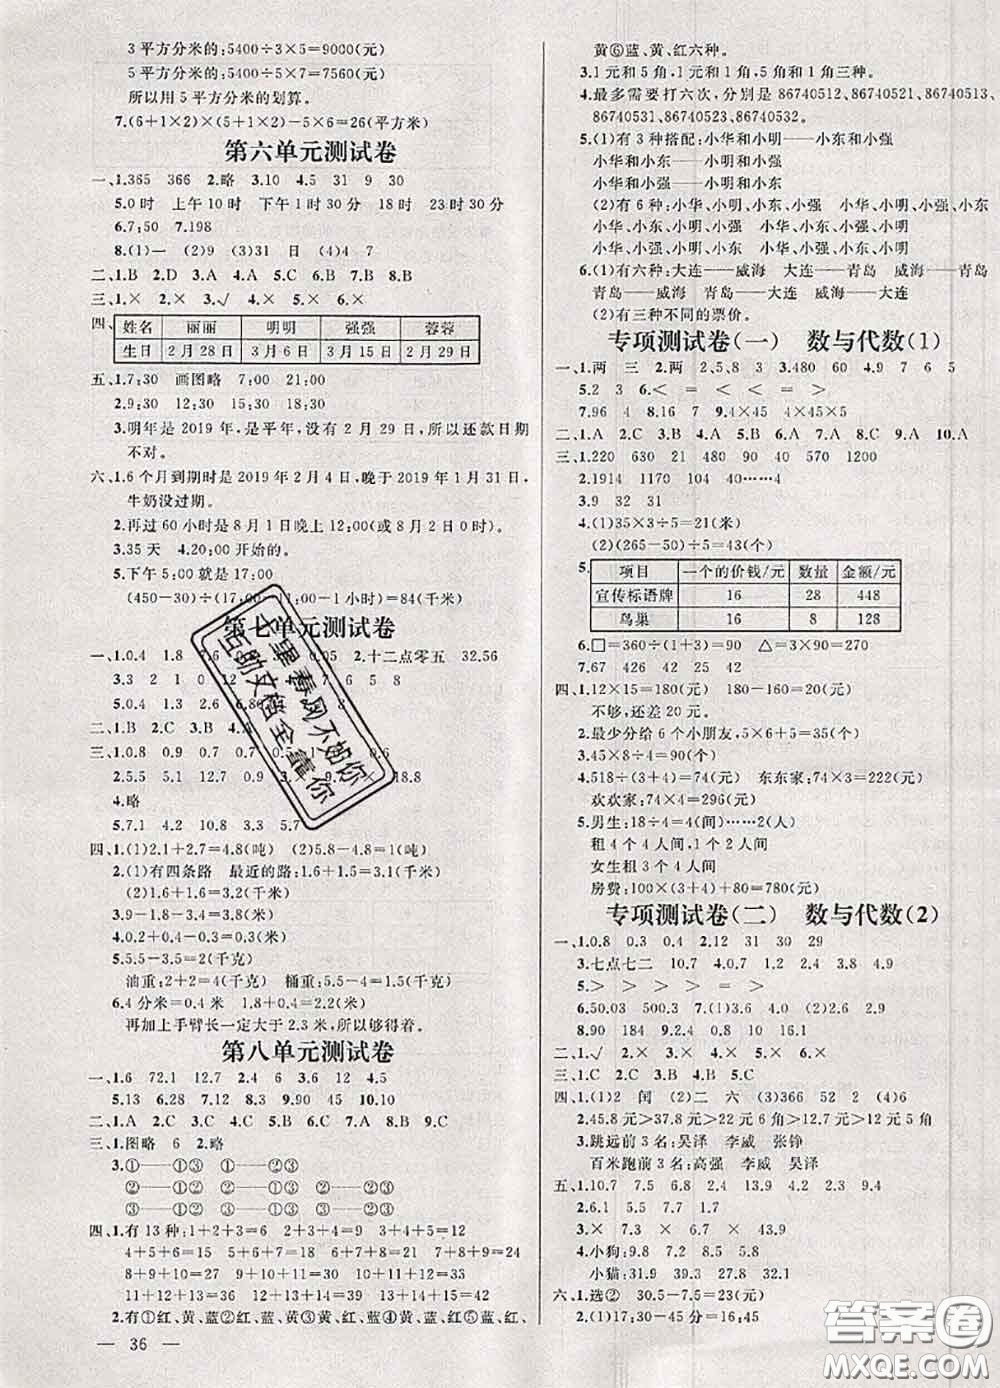 3平方分米的:5400÷3×5=9000(元)
5平方分米的:5400÷5×7=7560(元)
所以用5平方分米的划算。
7.(6+1×2)×(5+1×2)-5×6=26(平方米)
第六单元测试卷
一、1.365 366 2.略 3.10 4.5 31 9 30
5.0时 上午10时 下午1时30分 18时 23时30分
6.7;50 7.198
8.(1)一 (2)9 (3)31 日 (4)4 7
二、1.B 2.D 3.A 4.A 5.C 6.A 7.B 8.B
三、1.× 2.× 3.√ 4.× 5.× 6.×
四、 姓名 丽丽 明明 强强 蓉蓉
生日 2月28日 3月6日 3月15日 2月29日
五、1.7:30 画图略 7:00 21:00
2.9:30 12:30 15:30 18:30
3.明年是2019年,是平年,没有2月29日,所以还款日期
不对。
六、1.6个月到期时是2019年2月4日,晚于2019年1月31日,
牛奶没过期。
2.再过60小时是8月1日晚上12:00(或8月2日0时)。
3.35天 4.20:00开始的。
5.下午5:00就是17:00
(450-30)÷(17:00-11:00-1小时)=84(千米)
第七单元测试卷
一、1.0.4 1.8 0.05 2.十二点零五 32.56
3.3 2 1 0 12 6 5 8
5.0.4 0.6 1.2 6.8
二、1.B 2.C 3.B 4.
三、1.0.8 0.9 0.7 0.6
2.5.5 5.8 4.8
4.略
5.7.1 4.2 10.8 3.3 5.7
四、1.(1)2.1+2.7=4.8(吨) (2)5.8-4.8=1(吨)
2.(1)有四条路 最近的路:1.6+1.5=3.1(千米)
(2)1.6+1.6=3.2(千米)
3.9-0.4-0.4=8.2(米)
4.0.4+0.2-0.3=0.3(米)
5.5.5-3.5=2(千克)
油重:2+2=4(千克) 桶重:5.5-4=1.5(千克)
6.4分米=0.4米 1.8+0.4=2.2(米)
再加上手臂长一定大于2.3米,所以够得着。
第八单元测试卷
一、1.6 72.1 12.7 2.4 6 3.6 12 4.5
5.13 6.28 7.12 8.3 9.90 45 10.10
二、1.A 2.C 3.C 4.B 5.C 6.A 7.B 8.C
三、1.图略 6 2.略
3.①——①③ ①——②③
②——①③ ②——②③
③——①③ ③——②③
四、1.有13种:1+2+3=6 2+3+4=9 3+4+5=12
4+5+6=15 5+6+7=18 6+7+8=21 7+8+9=24
8+9+10=27 9+10+11=30 10+11+12=33
11+12+13=36 12+13+14=39 13+14+15=42
2.有①红、黄、蓝②红、蓝、黄③黄、红、蓝④黄、蓝、红⑤蓝、红、
— 36 —
黄⑥蓝、黄、红六种。
3.1元和5角,1元和1角,5角和1角三种。
4.最多需要打六次,分别是86740512、86740521、86740513、
86740531、86740523、86740532。
5.(1)有3种搭配:小华和小明——小东和小强
小华和小东——小明和小强
小华和小强——小明和小东
(2)有6种:小华、小明、小东、小强 小华、小明、小强、小东
小华、小东、小明、小强 小华、小东、小强、小明
小华、小强、小明、小东 小华、小强、小东、小明
6.(1)有六种:大连——威海 大连——青岛 威海——青岛
青岛——威海 威海——大连 青岛——大连
(2)有三种不同的票价。
专项测试卷(一) 数与代数(1)
一、1.两 三 2.两 2、5、8 3 3.480 60 4.9 7 6 5
5.2 3 6.< = < < = >
7.96 4 8.16 7 9.4×45 4×45×5
二、1.A 2.C 3.C 4.B 5.B 6.A 7.A 8.C 9.C 10.A
三、1.220 630 21 480 90 570 1200
2.1914 1170 1040 40……4
3.9 32 31
4.(1)35×3÷5=21(米)
(2)(265-50)÷5=43(个)
5. 项目 一个的价钱/元 数量 金额/元
宣传标语牌 16 28 448
鸟巢 16 8 128
6.□=360÷(1+3)=90 △=3×90=270
7.67 426 42 21
四、1.12×15=180(元) 180-160=20(元)
不够,还差20元。
2.最少分给6个小朋友,5×6+5=35(块)
3.45×8÷4=90(个)
4.518÷(3+4)=74(元) 东东家:74×3=222(元)
欢欢家:74×4=296(元)
5.男生:18÷4=4(间)……2(人)
租4个4人间,1个2人间
女生租3个4人间
房费:100×(3+4)+80=780(元)
专项测试卷(二) 数与代数(2)
一、1.0.8 0.3 0.4 2.12 31 30 29
3.七点七二 10.7 4.0.7 1.2 2.4 3.8 4.9
5.> > > > = >
6.50.03 500.3 7.(1)3.6 (2)9.4
8.90 184 9.0.4 0.8 10 16.1
二、1.√ 2.× 3.× 4.× 5.×
三、1.C 2.C 3.A 4.B 5.C
四、1.(1)2 闰 (2)二 六 (3)366 52 2 (4)6
2.45.8元>37.8元>22元6角>12.7元>12元5角
3.跳远前3名:吴泽 李威 张铮
百米跑前3名:高强 李威 吴泽
五、1.10.7 7.5 6.8 2.4 13.9 4.2 2.2 9.4
2.1.6 5.7 1.7
3.× 7.3 × 6.7 × 43.9
4.小狗:9.8 7.2 5.8
小猫:31.9 39.9 25.9
六、1.选② 30.5-7.5=23(元)
2.(1)17:30-45分=16:45
十里春风不如你
百助文档全靠你
答案圈
MXQE.COM